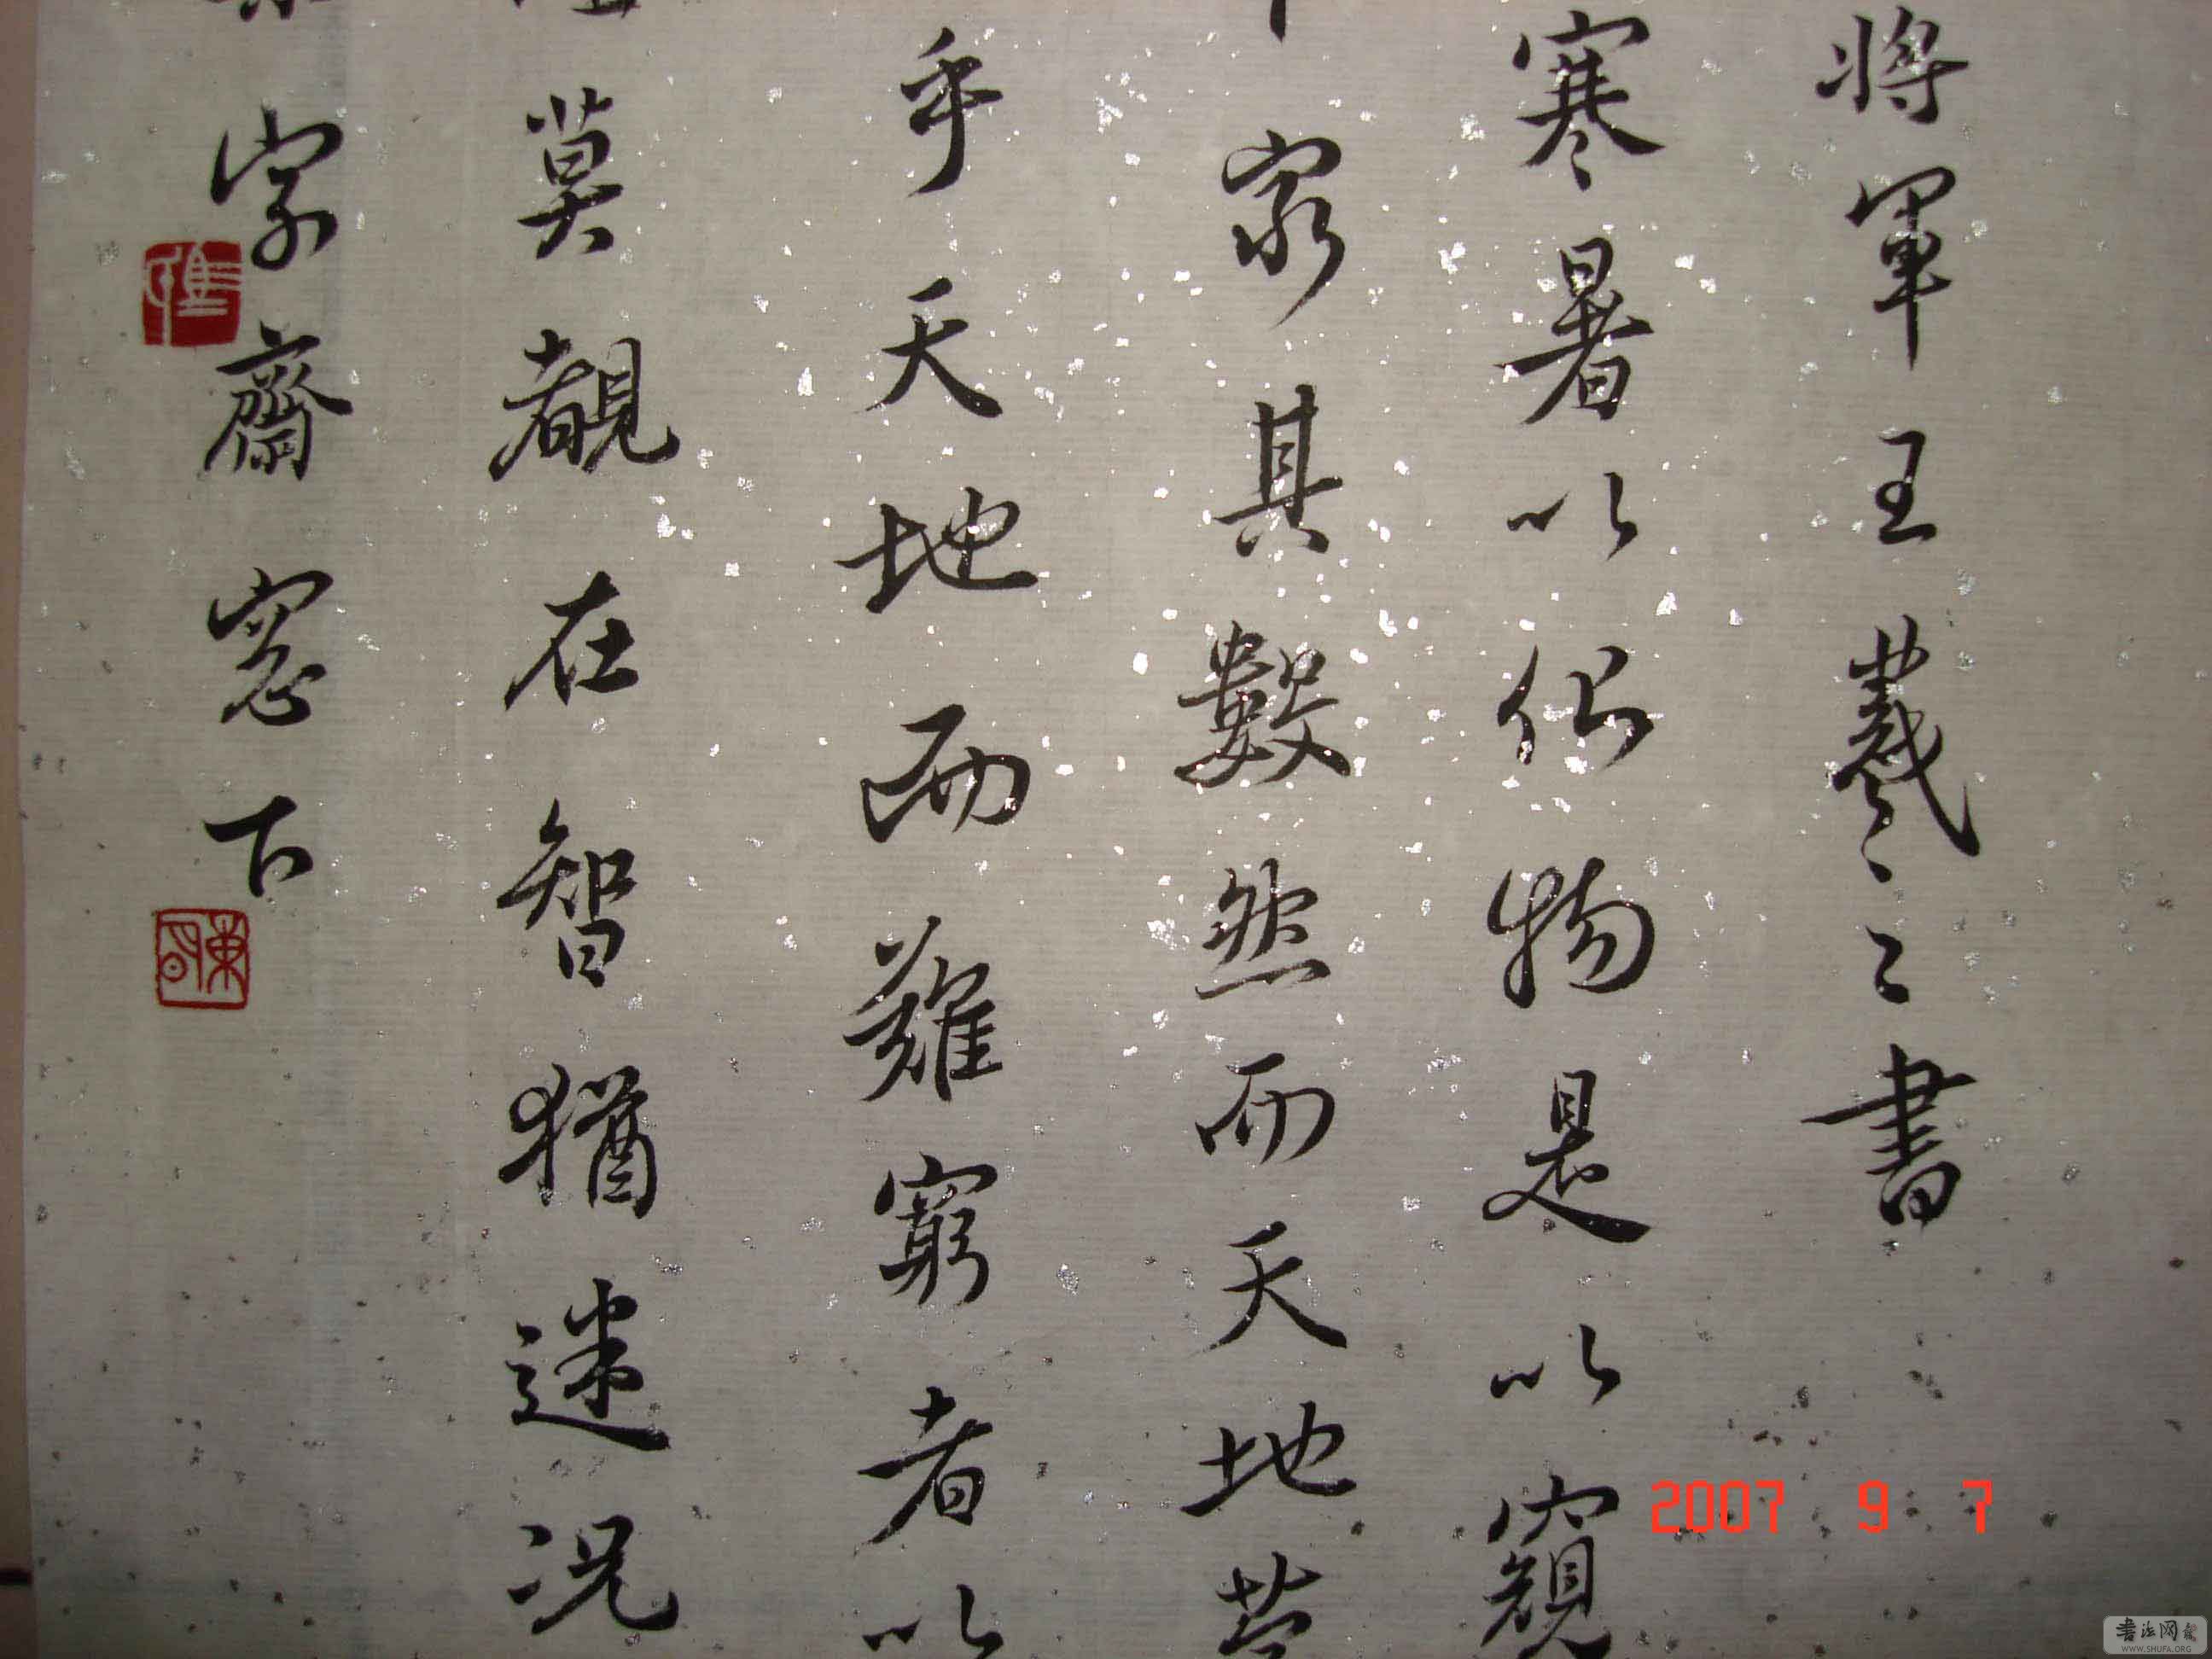 將軍王羲之書
寒暑以化物是以窺
窮其數然而天地苞
乎天地而難窮者以
莫覩在智猶迷況
字齋窓下
2007 9 7
書法网
WWW.SHUFA.ORG